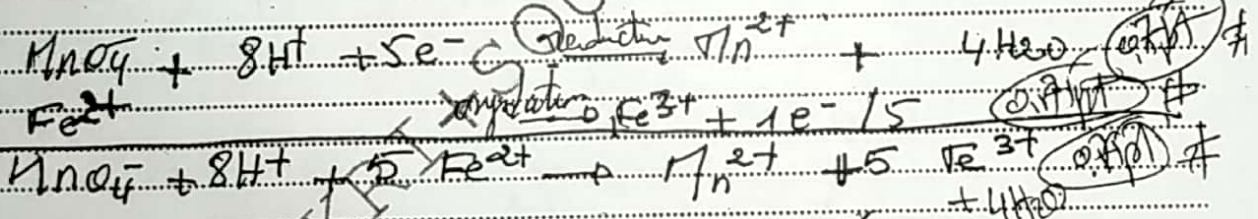 MnO₄⁻ + 8H⁺ + 5e⁻ Reduction Mn²⁺ + 4H₂O
Fe²⁺ oxydation → Fe³⁺ + 1e⁻ /5
MnO₄⁻ + 8H⁺ + 5 Fe²⁺ → Mn²⁺ + 5 Fe³⁺
+ 4H₂O